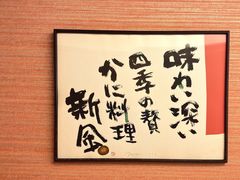 味わい深い
四季の賛
かに料理
新金